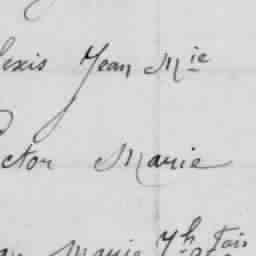 lexis Jean M^ie
ctor Marie
Marie Jh Fois